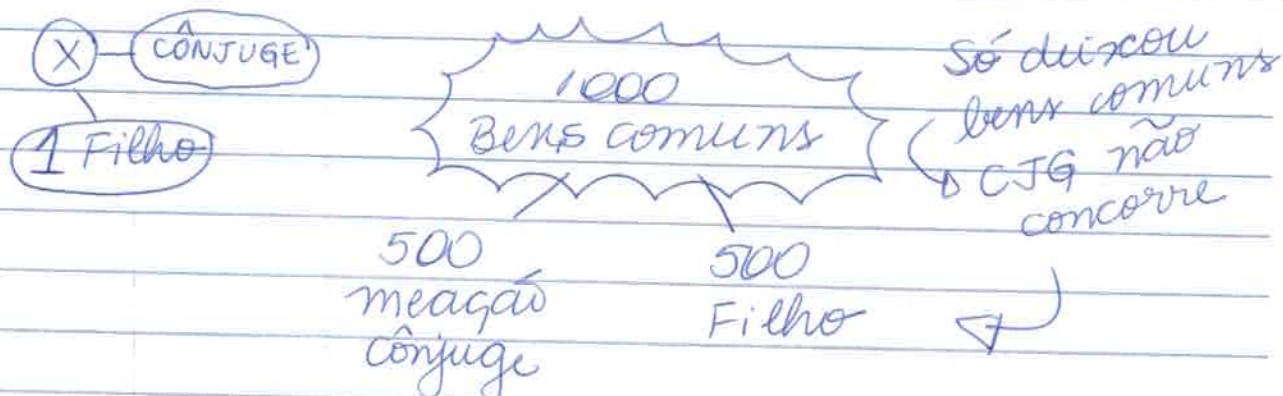 X CÔNJUGE
1 Filho
1000
Bens comuns
Só deixou
bens comuns
CJG não
concorre
500
meação
Cônjuge
500
Filho